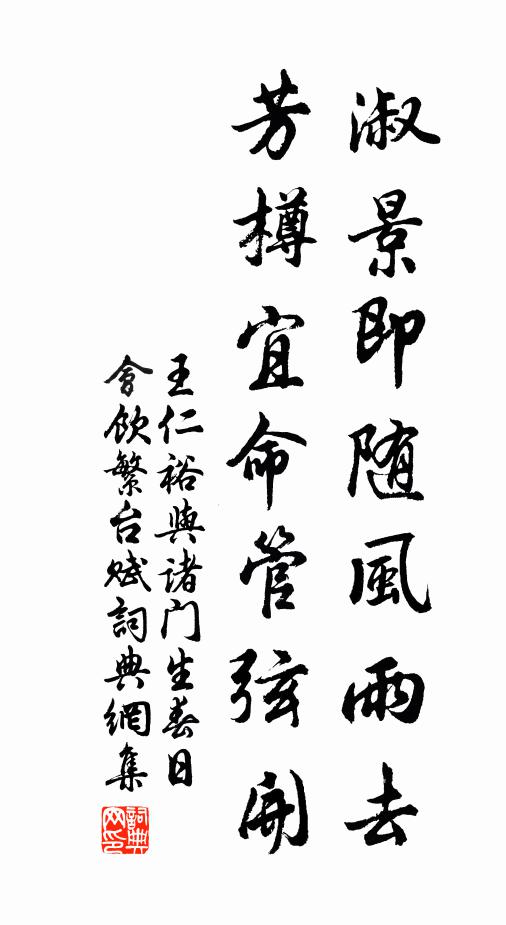 淑景即随風雨去
芳樽宜命管弦開
王仁裕與诸门生春日
會飲繁台賦詞典網集
詞典
网印